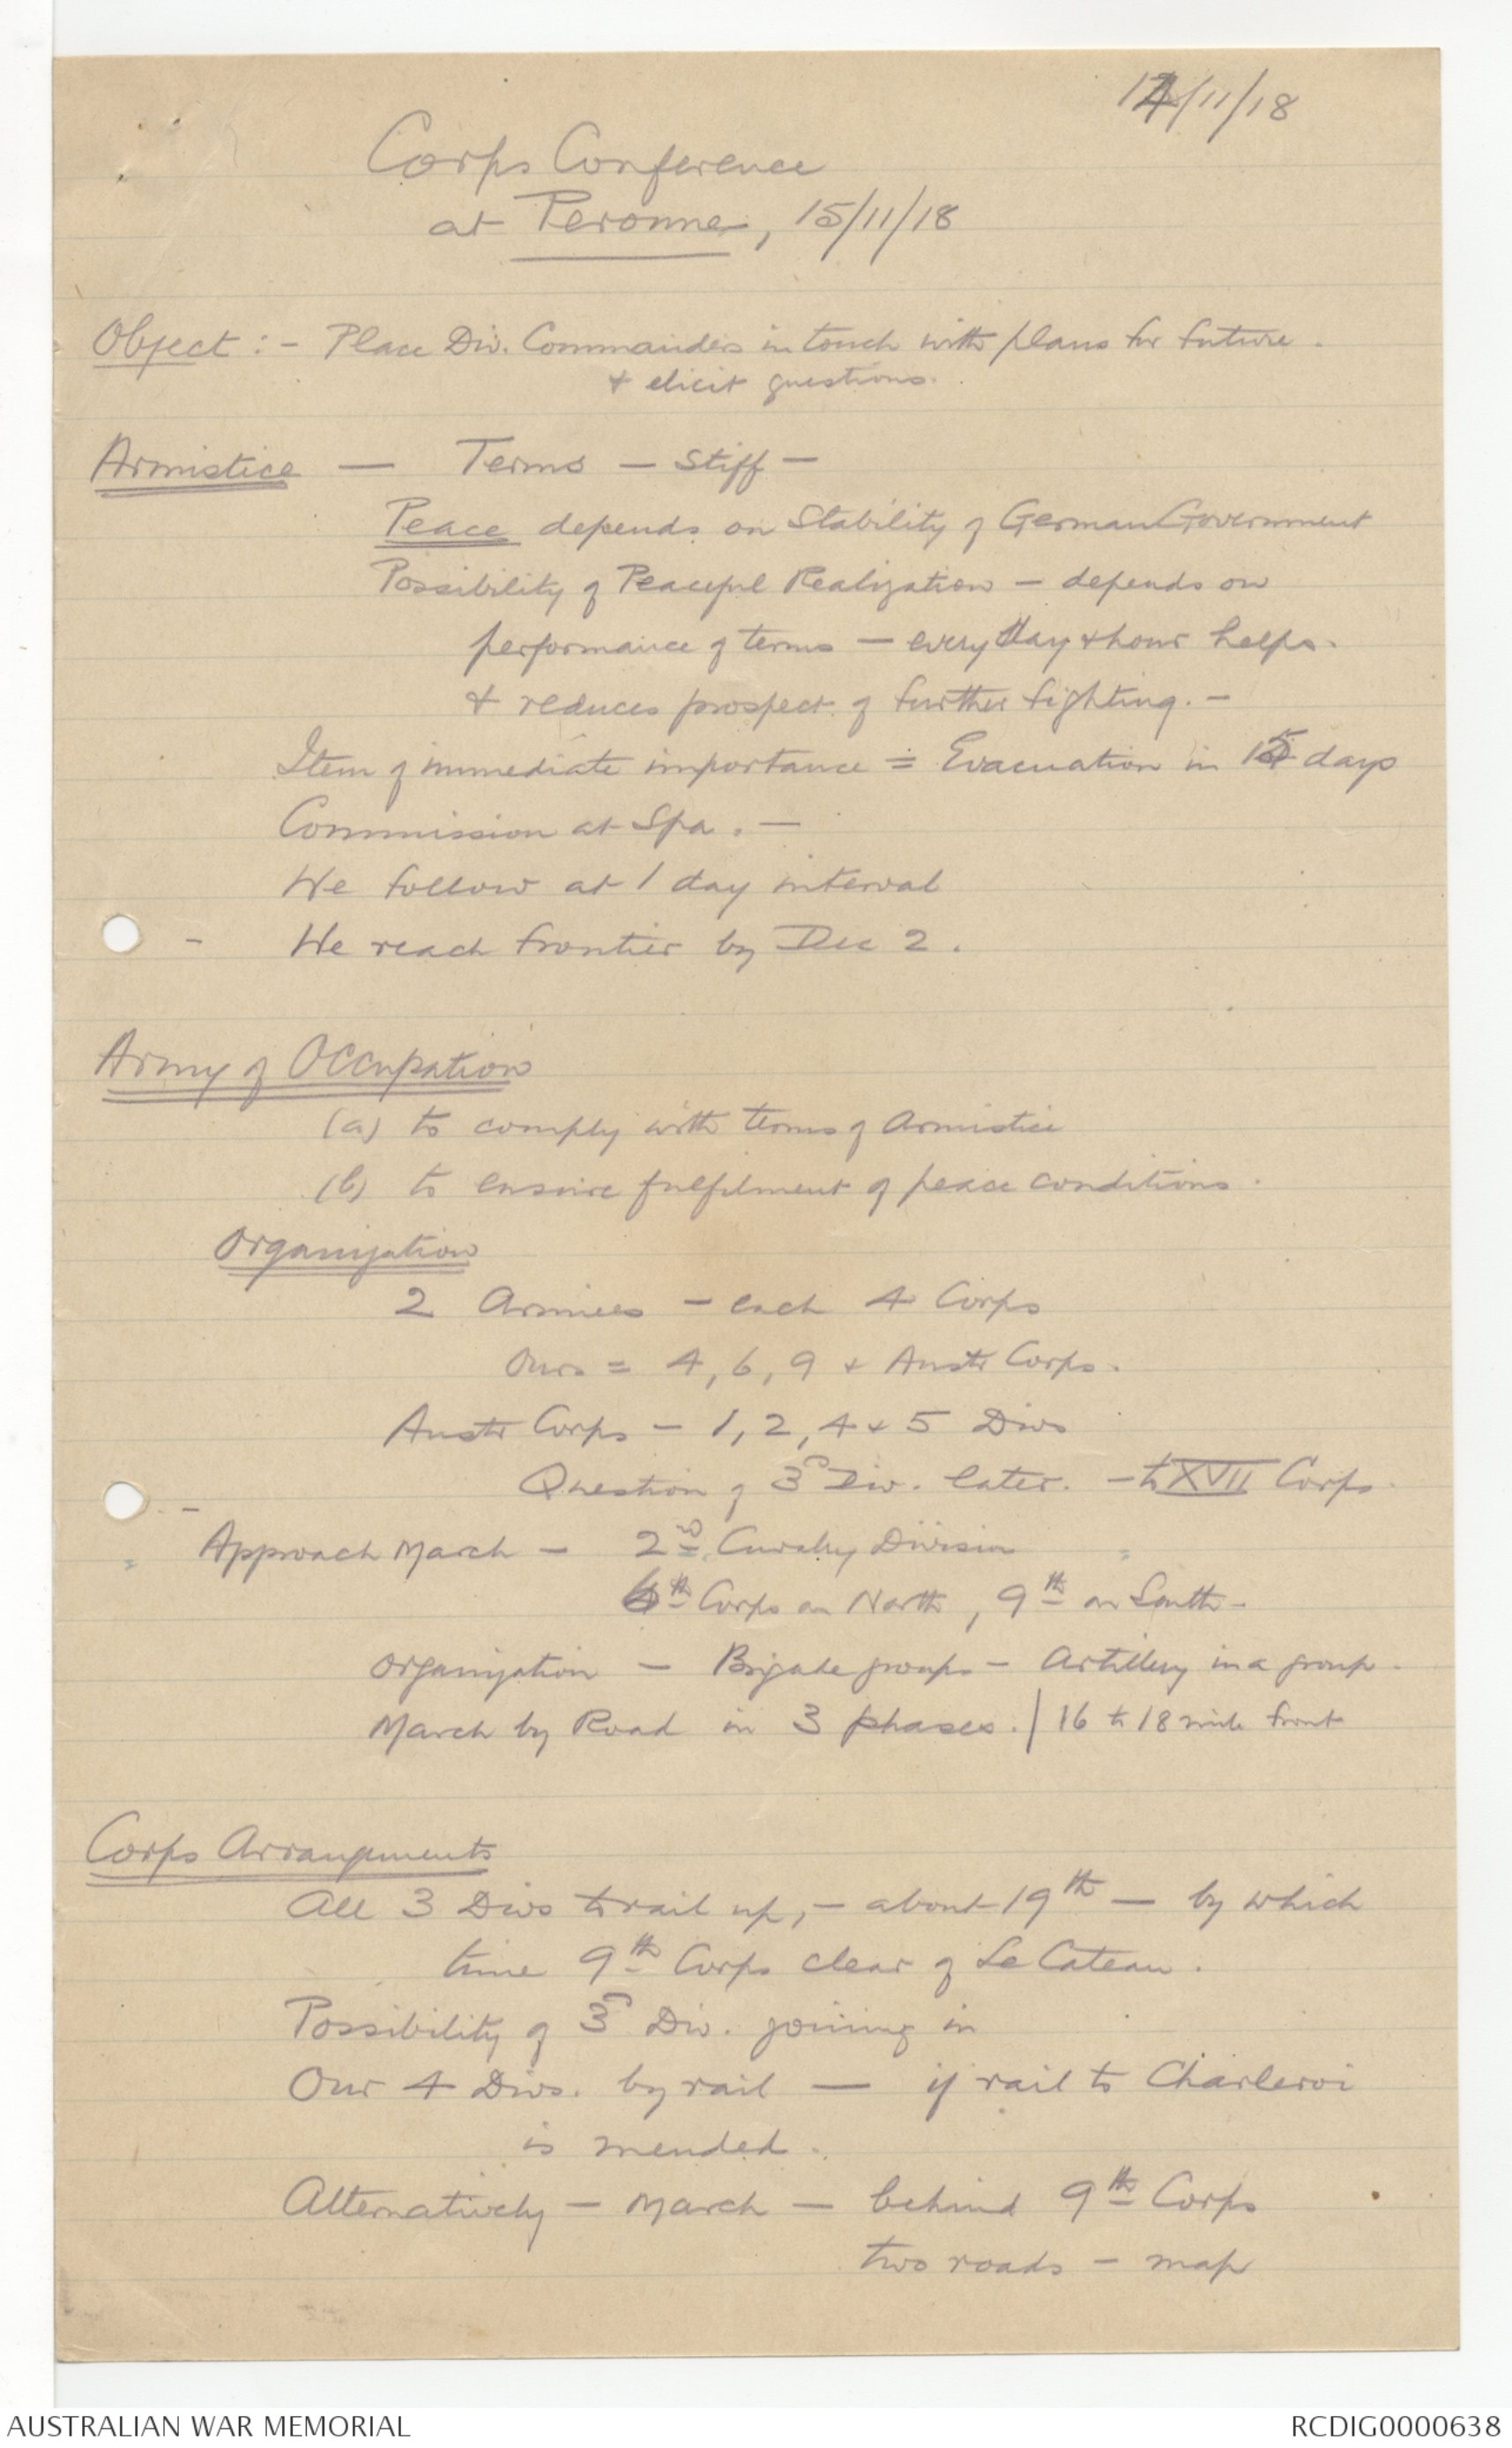 14/11/18
Corps Conference
at Peronne, 15/11/18
Object :- Place Div. Commanders in touch with plans for future.
& elicit questions.
Armistice — Terms — Stiff —
Peace depends on Stability of German Government
Possibility of Peaceful Realization — depends on
performance of terms — every day & hour helps.
& reduces prospect of further fighting. —
Item of immediate importance = Evacuation in 15 days
Commission at Spa. —
We follow at 1 day interval
- We reach frontier by Dec 2.
Army of Occupation
(a) to comply with terms of Armistice
(b) to ensure fulfilment of peace conditions.
Organization
2 Armies — each 4 Corps
Ours = 4, 6, 9 & Austr Corps.
Austr Corps — 1, 2, 4 & 5 Divs
Question of 3rd Div. later. — to XVII Corps.
-
Approach March — 2nd Cavalry Division
6th Corps on North, 9th on South —
Organization — Brigade groups — Artillery in a group.
March by Road in 3 phases. / 16 to 18 mile front
Corps Arrangements
All 3 Divs to rail up, — about 19th — by which
time 9th Corps clear of Le Cateau.
Possibility of 3rd Div. joining in
Our 4 Divs. by rail — if rail to Charleroi
is mended.
Alternatively — March — behind 9th Corps
two roads — map
AUSTRALIAN WAR MEMORIAL
RCDIG0000638